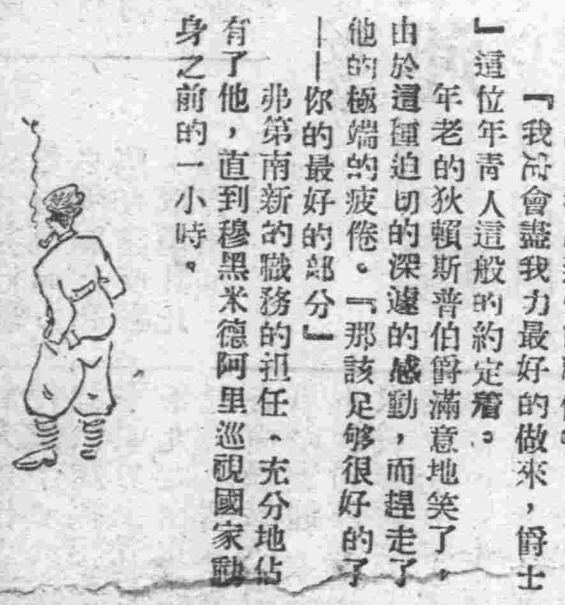 『我定會盡我力最好的做來，爵士
』這位年青人這般的約定着。
年老的狄賴斯普伯爵滿意地笑了，
由於這種迫切的深遠的感動，而趕走了
他的極端的疲倦。『那該足够很好的了
——你的最好的部分』
弗第南新的職務的担任、充分地佔
有了他，直到穆黑米德阿里巡視國家動
身之前的一小時。